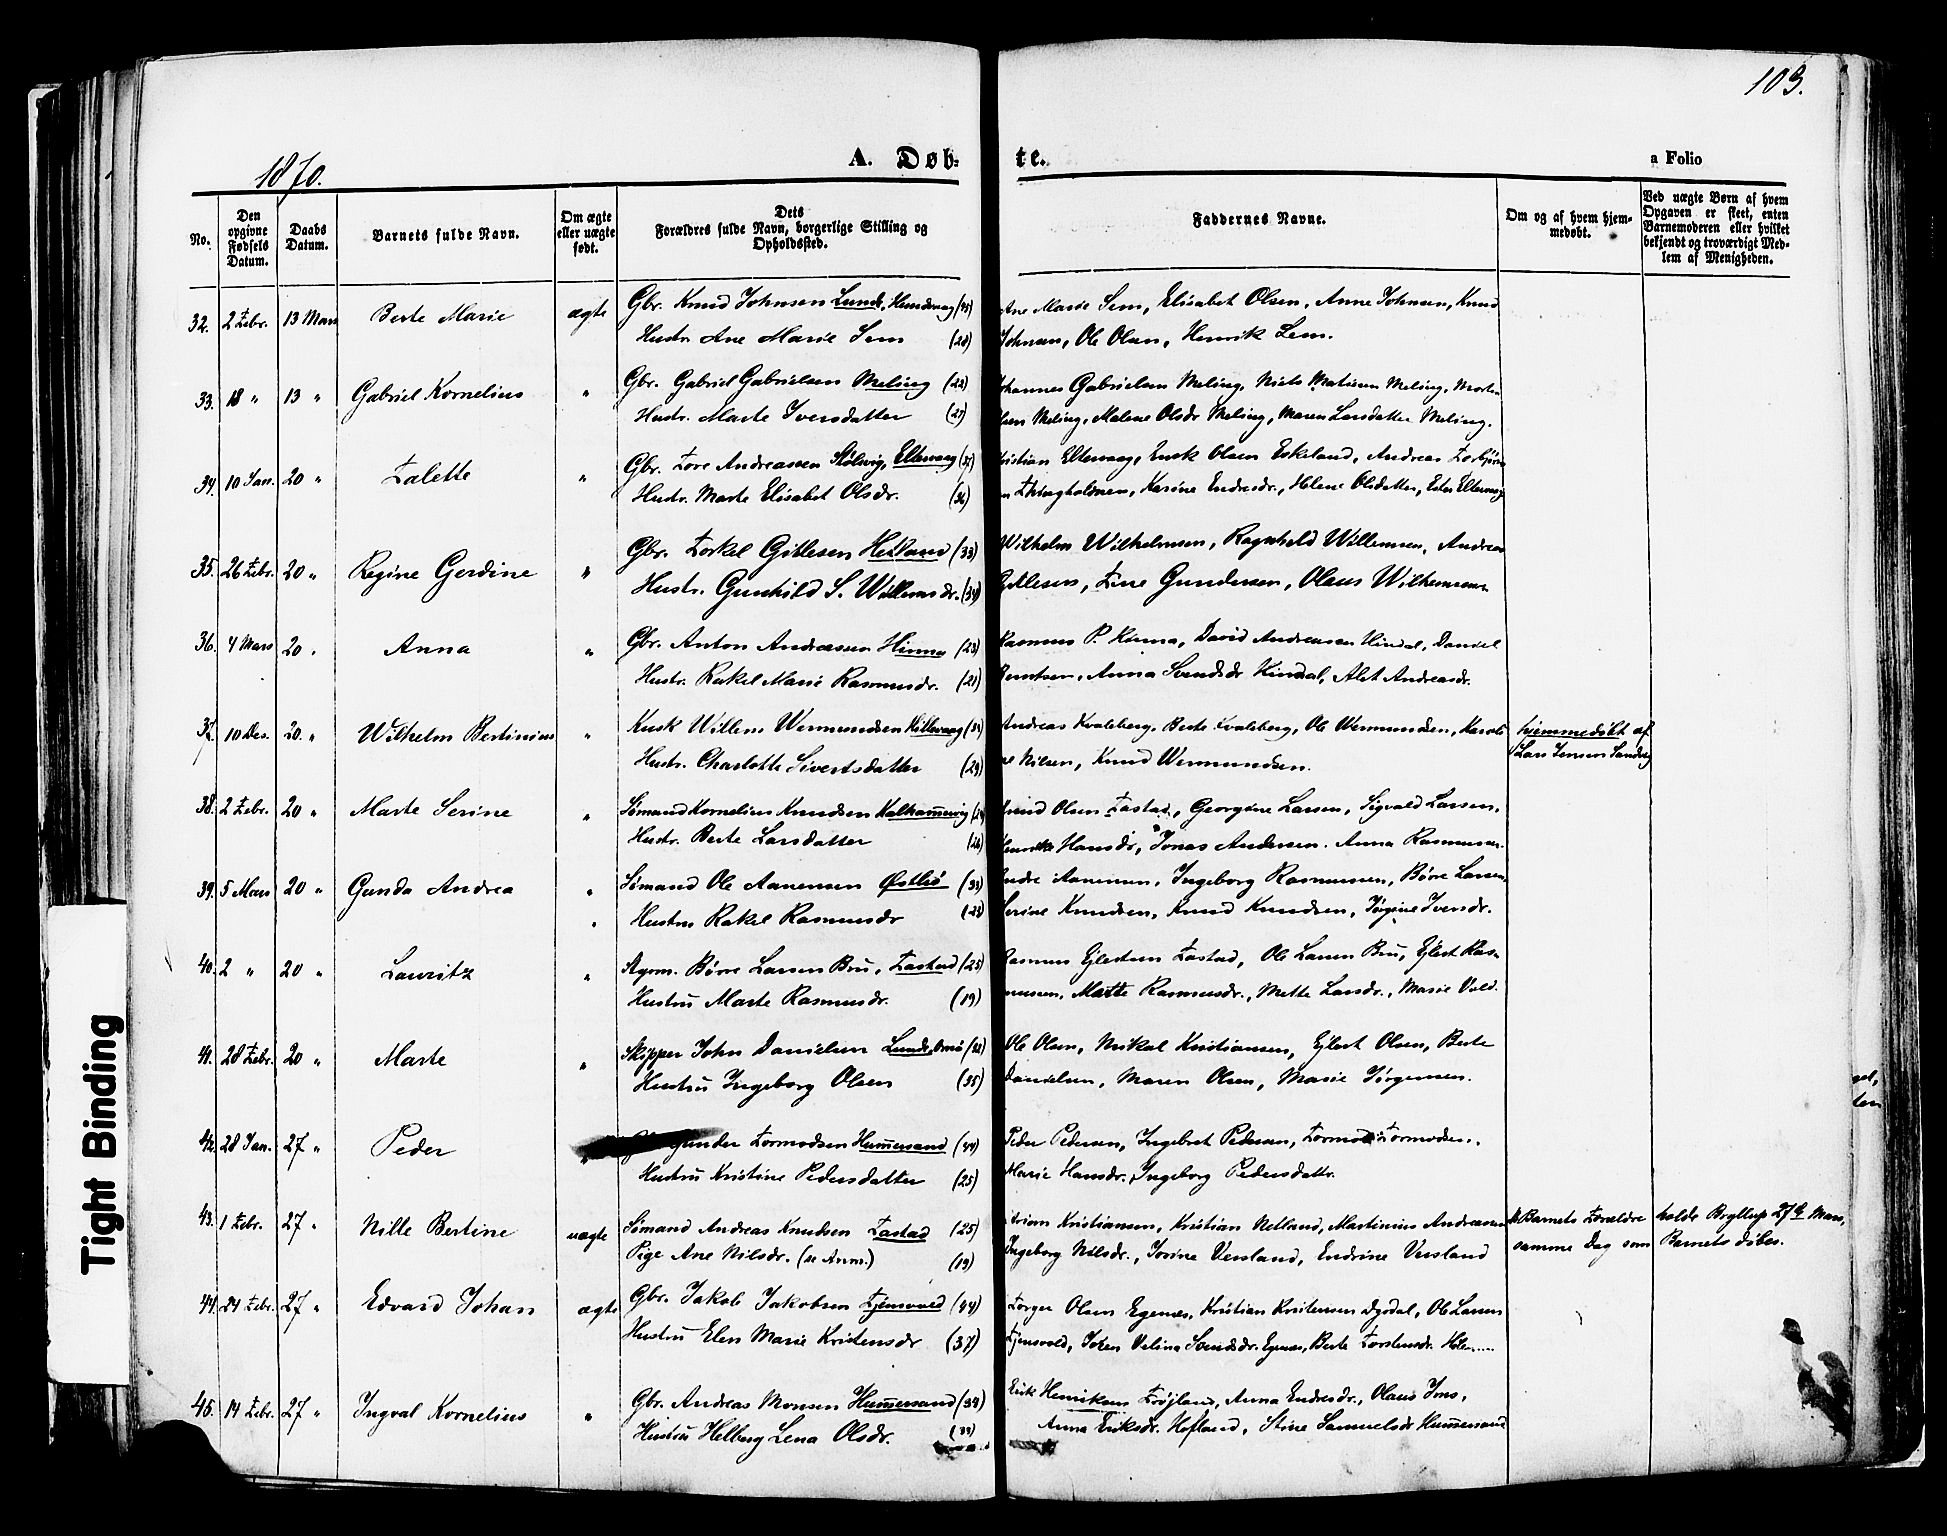 103.
1870.
A. Døb-
te.
a Folio
No.
Den opgivne Fødsels Datum.
Daabs Datum.
Barnets fulde Navn.
Om ægte eller uægte født.
Dets Forældres fulde Navn, borgerlige Stilling og Opholdssted.
Faddernes Navne.
Om og af hvem hjemmedøbt.
Ved uægte Børn af hvem Opgaven er skeet, enten Barnemoderen eller hvilket bekjendt og troværdigt Medlem af Menigheden.
32. 2 Febr. 13 Mars Berte Marie ægte Gbr. Knud Johnsen Lunde, Hundvaag
Hustr. Ane Marie Sem (28)
Ane Marie Sem, Elisabet Olsen, Anne Johnsen, Knud
Johnsen, Ole Olsen, Henrik Sem.
33. 18 " 13 " Gabriel Kornelius " Gbr. Gabriel Gabrielsen Meling (22)
Hustr. Marte Iversdatter (27)
Johannes Gabrielsen Meling, Niels Matisen Meling, Morten
Olsen Meling, Malene Olsdr Meling, Maren Larsdatter Meling.
34. 10 Jan. 20 " Talette " Gbr. Tore Andreassen Stølsvig, Eltervaag
Hustr. Marte Elisabet Olsdr. (36)
Kristian Eltervaag, Enok Olsen Eskeland, Andreas Torbjørn
Karine Endresdr., Helene Olsdatter, Ester Eltervaag
35. 26 Febr. 20 " Regine Gerdine " Gbr. Torkel Gitlesen Hetland (33)
Hustr. Gunhild S. Willemsdr. (34)
Wilhelm Wilhelmsen, Ragnhild Willemsen, Andreas
Gitlesen, Tine Gundersen, Olaus Wilhemsen
36. 4 Mars 20 " Anna " Gbr. Anton Andreassen Hinna (23)
Hustr. Rakel Marie Rasmusdr. (21)
Rasmus P. Hinna, David Andreassen Hindal, Daniel
Berntsen, Anna Svendsdr Hindal, Alet Andreasdr.
37. 10 Des. 20. " Wilhelm Bertinius " Kusk Willem Wermundsen Hillevaag
Hustr. Charlotte Sivertsdatter (29)
Andreas Kvaleberg, Berte Kvaleberg, Ole Wermundsen, Karoli
ne Nilsen, Knud Wermundsen.
hjemmedøbt af
Lars Jensen Sandvig
38. 2 Febr. 20 " Marte Serine " Sømand Kornelius Knudsen Kalhammervig
Hustr. Berte Larsdatter (26)
Knud Olsen Tastad, Georgine Larsen, Sigvald Larsen,
Henrikke Hansdr, Jonas Andersen. Anna Rasmussen.
39. 5 Mars 20 " Gunda Andrea " Sømand Ole Aanensen Østbø (33)
Hustru Rakel Rasmusdr (23)
Endre Aanensen, Ingeborg Rasmussen, Børre Larsen,
Serine Knudsen, Knud Knudsen, Jørgine Iversdr.
40. 2 " 20 " Lauritz " Styrm. Børre Larsen Bru, Tastad (25)
Hustru Marte Rasmusdr. (19)
Rasmus Ejlertsen Tastad, Ole Larsen Bru, Ejlert Ras-
mussen, Martte Rasmusdr., Mette Larsdr., Marie Vold.
41. 28 Febr. 20 " Marte " Skipper John Danielsen Lunde, Omø
Hustru Ingeborg Olsen (35)
Ole Olsen, Mikal Kristiansen, Ejlert Olsen, Berte
Danielsen, Maren Olsen, Marie Jørgensen.
42. 28 Jan. 27 " Peder " Gunder Tormodsen Hummersand (44)
Hustru Kristine Pedersdatter (25)
Peder Pedersen, Ingebret Pedersen, Tormod Tormodsen.
Marie Hansdr. Ingeborg Pedersdattr.
43. 1 Febr. 27 " Nille Bertine uægte Sømand Andreas Knudsen Tastad (25)
Pige Ane Nilsdr. (se Anm.) (19)
Adrian Kristiansen, Kristian Netland, Martinius Andreasen
Ingeborg Nilsdr., Josine Versland, Endrine Versland
Barnets Forældre holdt Bryllup 27de Mars,
samme Dag som Barnets døbes.
44. 24 Febr. 27 " Edvard Johan ægte Gbr. Jakob Jakobsen Tjensvold (44)
Hustru Elen Marie Kristensdr (37)
Torger Olsen Egenæs, Kristian Kristensen Dysdal, Ole Larsen
Tjensvold, Joren Velina Svendsdr. Egenæs, Berte Torstensdr.
45. 14 Febr. 27 " Ingval Kornelius " Gbr. Andreas Monsen Hummersand (34)
Hustru Helberg Lena Olsdr. (33)
Erik Henriksen Frøjland, Anna Endresdr., Olaus Jons,
Anna Eriksdr. Hofland, Stine Samuelsdr Hummersand
Tight Binding